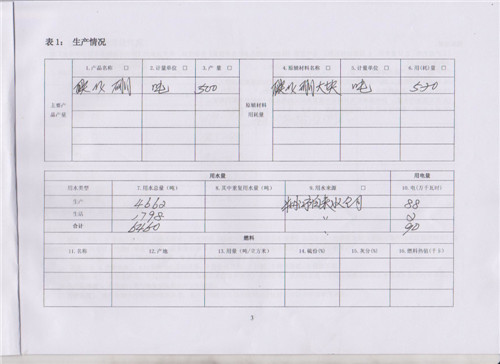 表1： 生产情况
1.产品名称 □ 2.计量单位 □ 3.产 量 □ 4.原辅材料名称 □ 5.计量单位 □ 6.用(耗)量 □
吨 500 吨 520
主要产品产量 原辅材料用耗量
用水量 用电量
用水类型 7.用水总量（吨） 8.其中重复用水量（吨） 9.用水来源 □ 10.电(万千瓦时)
生产 4662 88
生活 1798 〃 2
合计 6460 〃 90
燃料
11.名称 12.产地 13.用量（吨/立方米） 14.硫份(%) 15.灰分(%) 16.燃料热值(千卡)
3